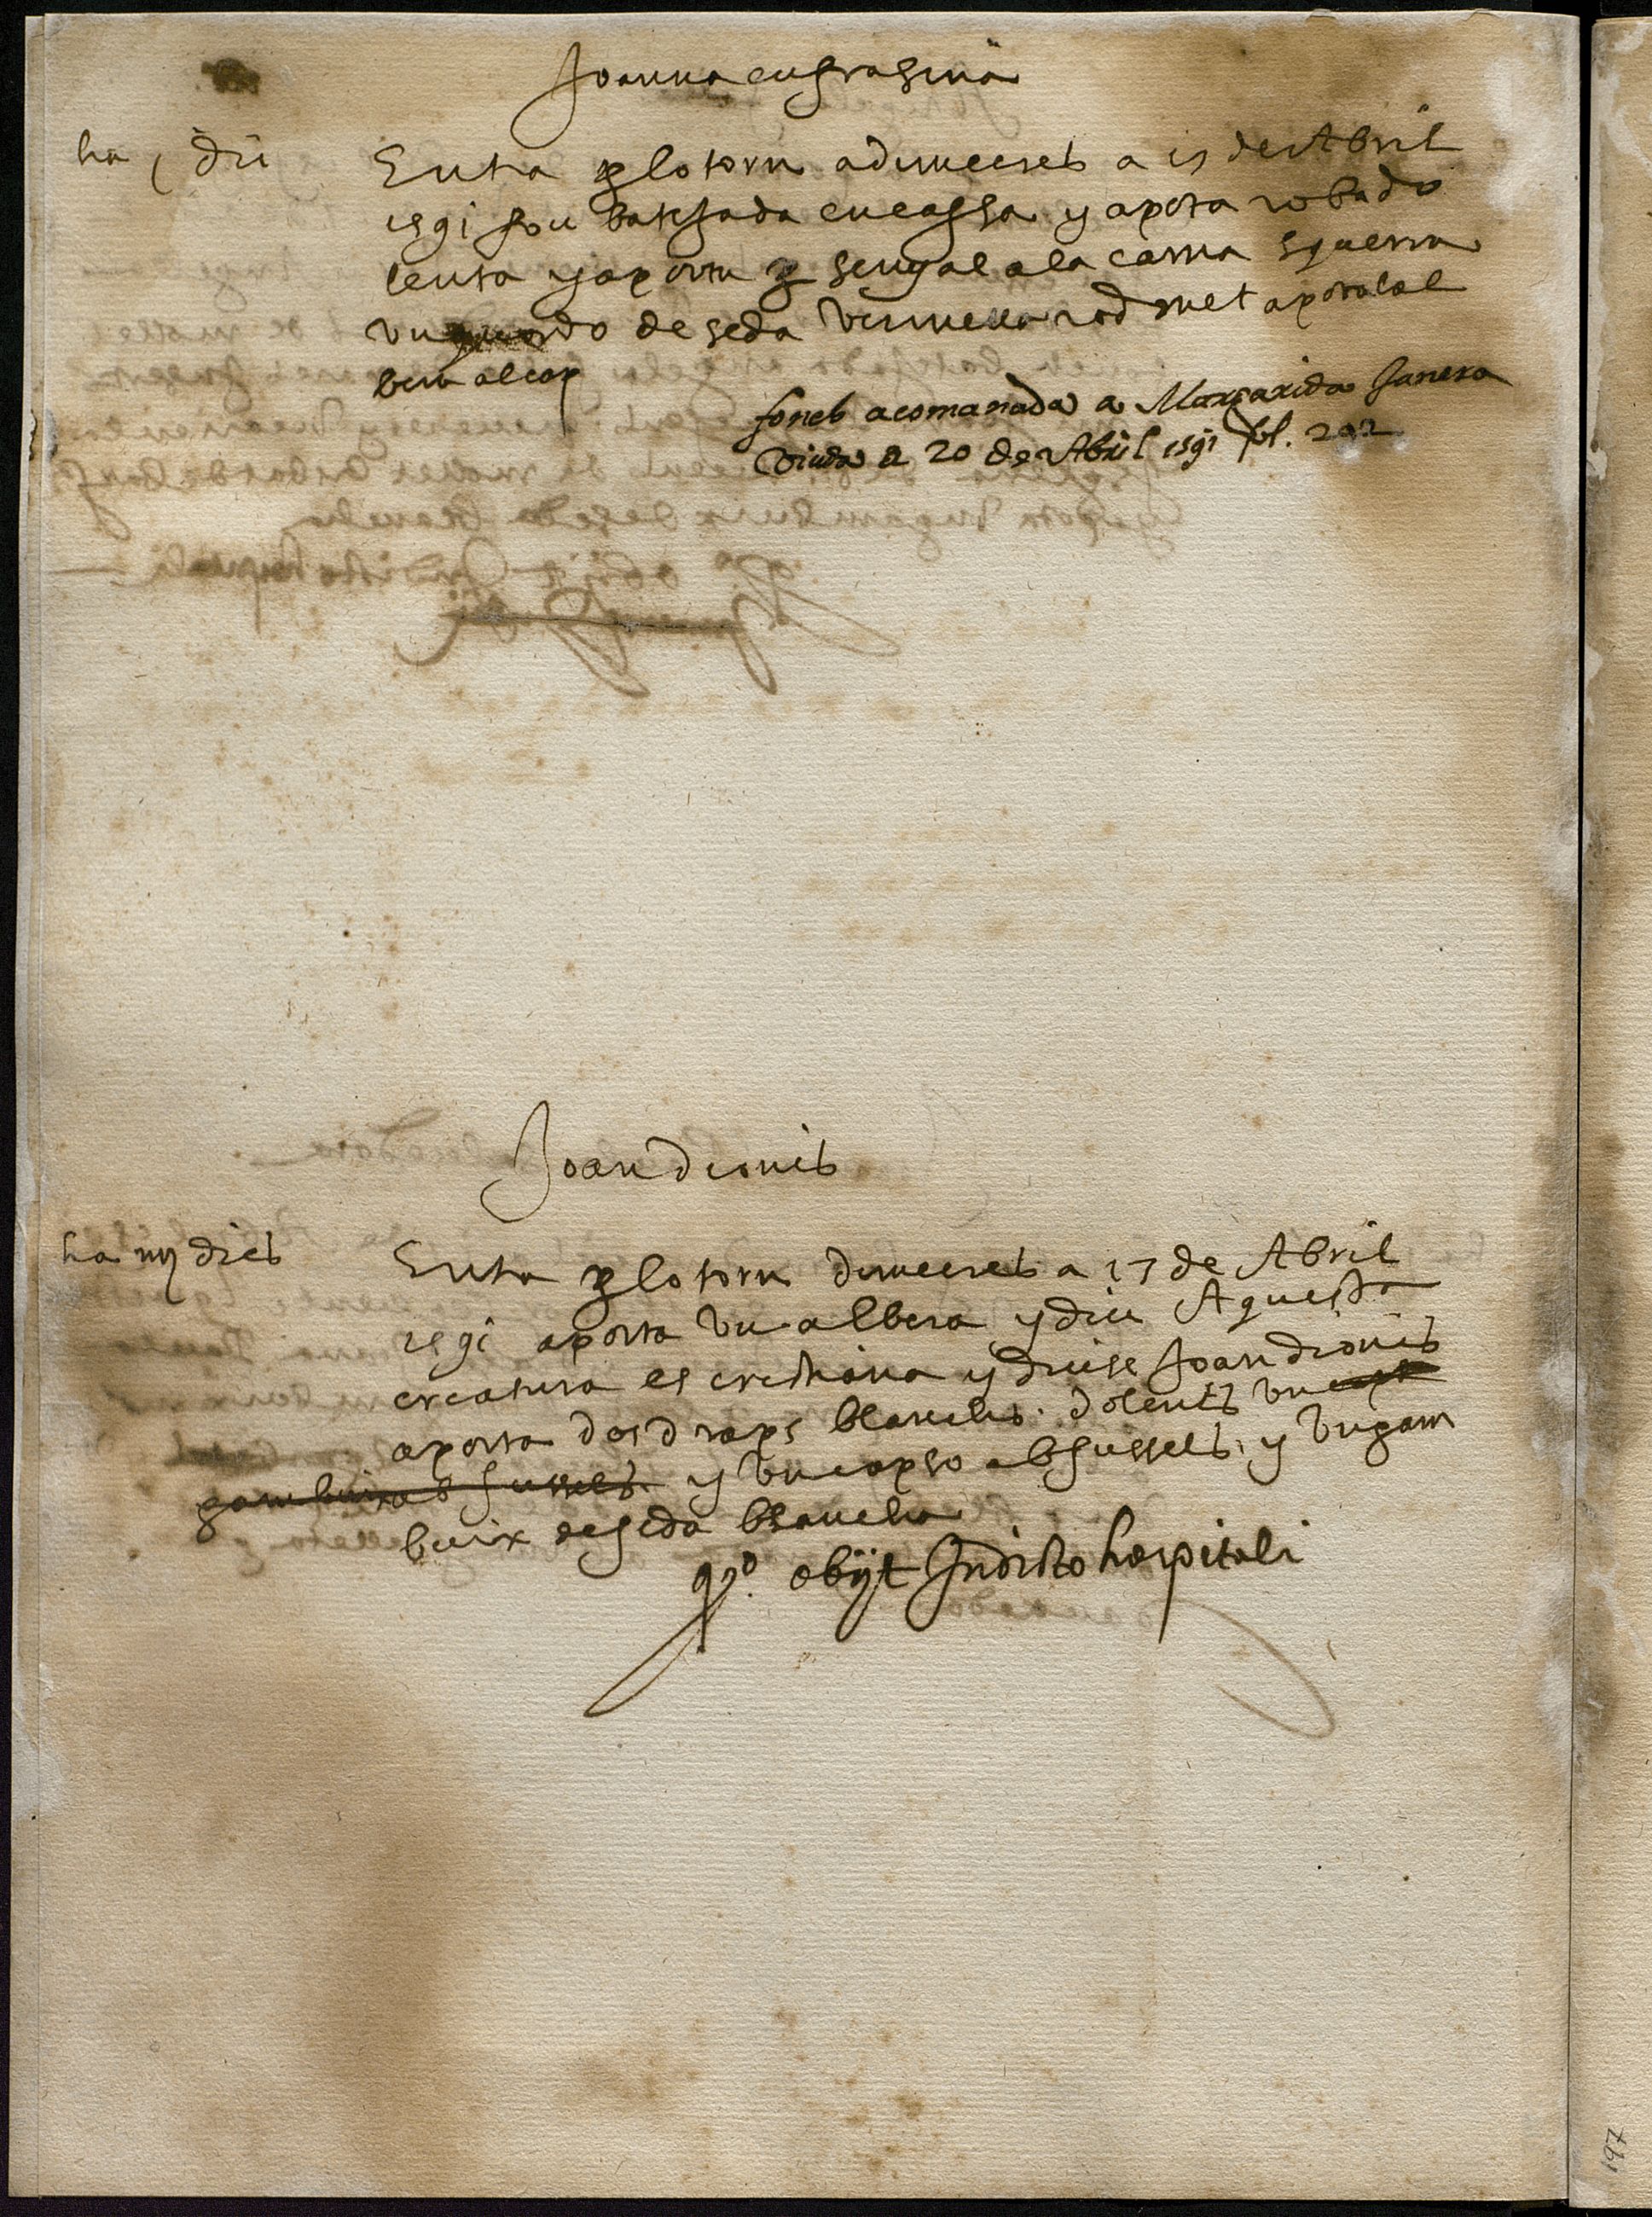 Joanna eufrasina
ha 1 dia
Entra per lo torn a dimecres a 15 de Abril
1591 fou batejada en cassa y aporta roba do
lenta y aporta per sengal a la cama squerra
vn de seda vermella aporta lal
ben al cap
fonch acomanada a Margarida Janera
viuda a 20 de Abril 1591 fol. 292
Joan dionis
ha iiij dies
Entra per lo torn dimecres a 17 de Abril
1591 aporta vn albera y diu Aquesta
creatura es cristiana y diu se Joan dionis
aporta dos draps blanchs dolents vn
gambuix ab fussells y vn capso ab fussells y vn gam
buix de seda blancha
obijt In dicto hospitali
197